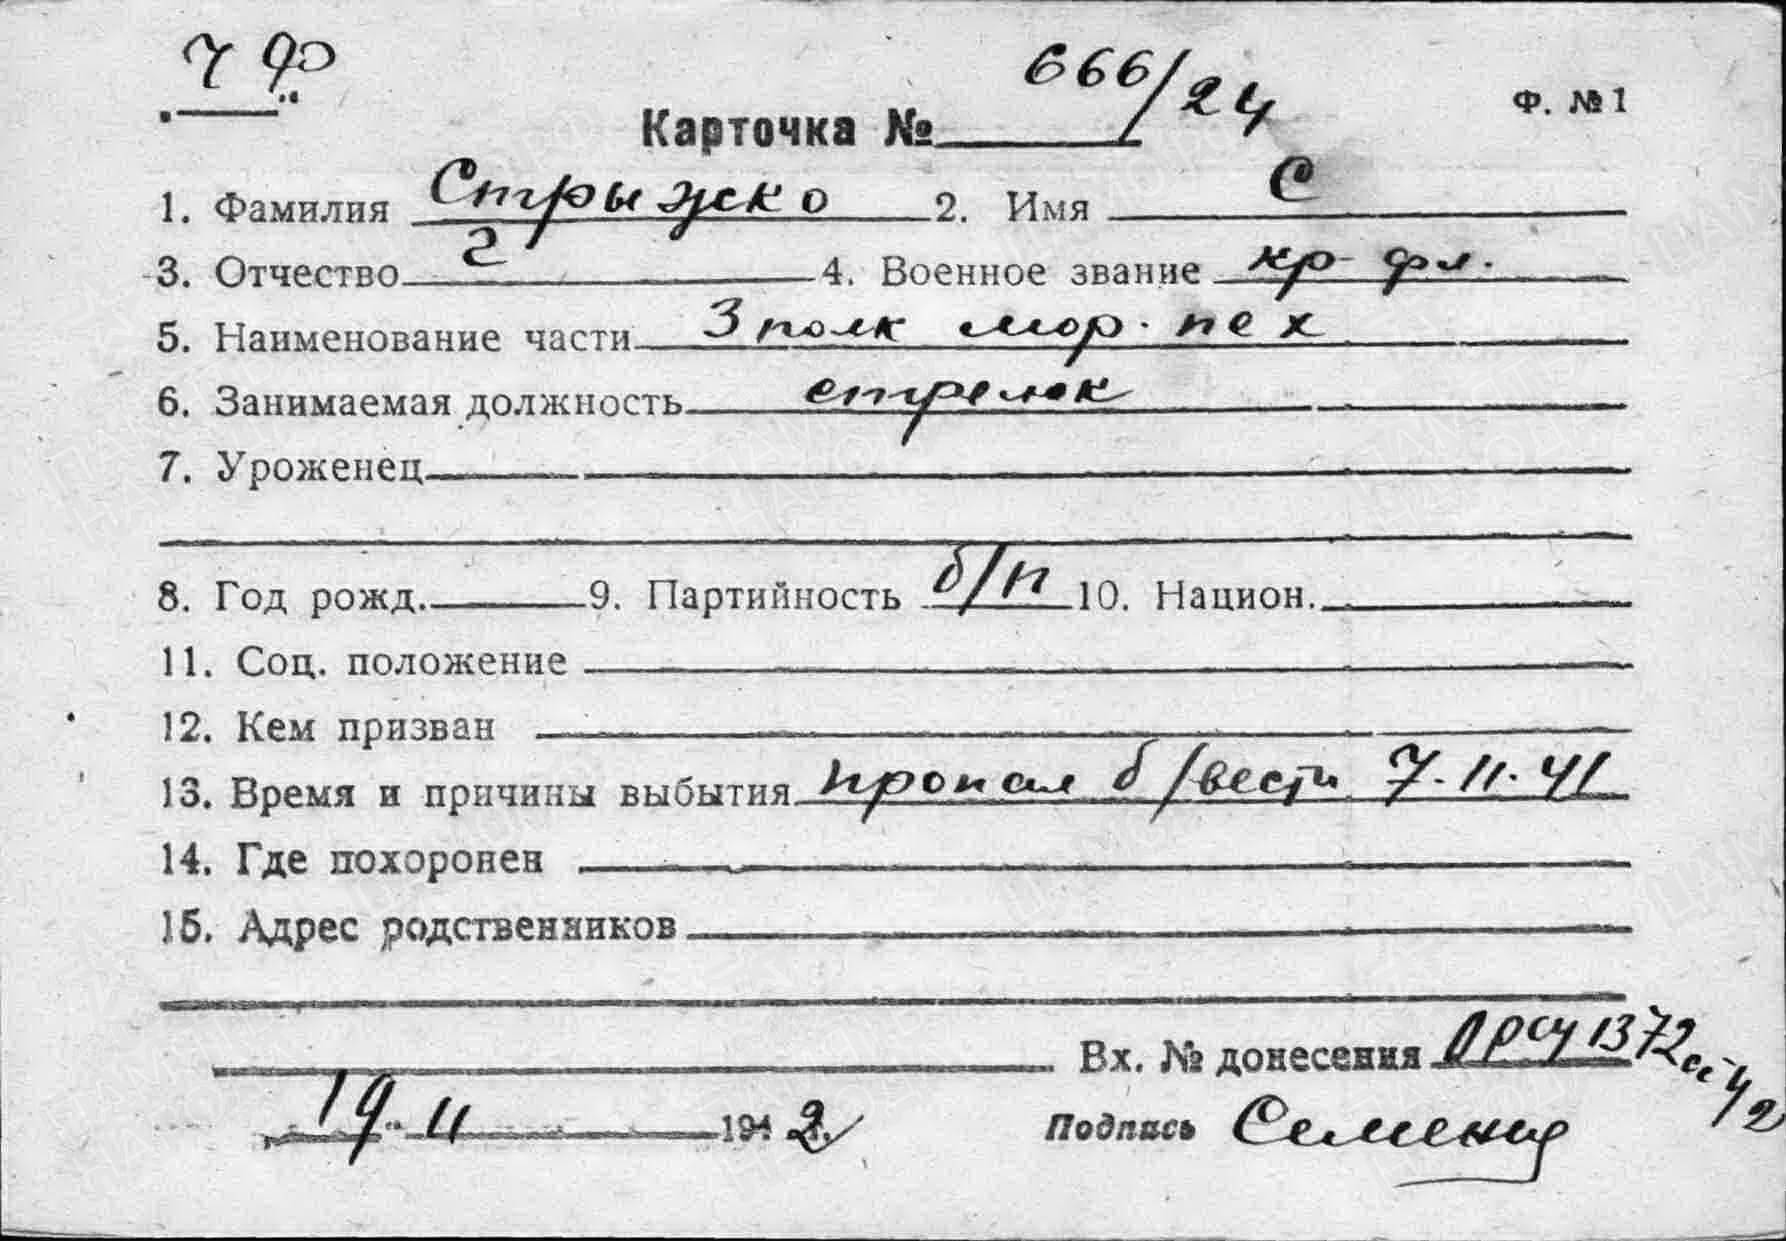 ЧФ
666/24
Ф. № 1
Карточка №
1. Фамилия Стрыжко 2. Имя С
3. Отчество Г 4. Военное звание кр-фл.
5. Наименование части 3 полк мор. пех
6. Занимаемая должность стрелок
7. Уроженец
8. Год рожд. 9. Партийность б/п 10. Национ.
11. Соц. положение
12. Кем призван
13. Время и причины выбытия пропал б/вести 7.11.41
14. Где похоронен
15. Адрес родственников
Вх. № донесения 1372сс-42
19 11 1942 Подпись